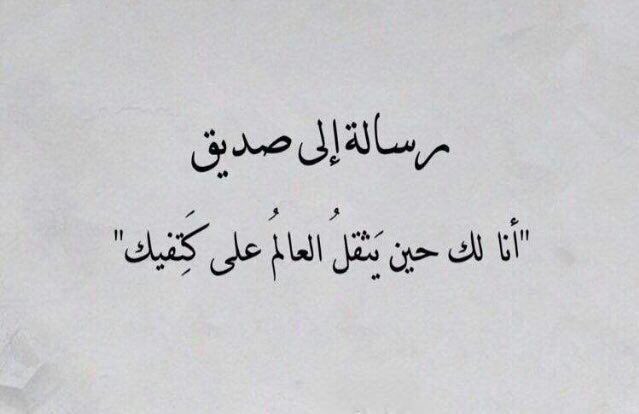 رسالة إلى صديق
"أنا لك حين يَثقلُ العالمُ على كَتِفيك"